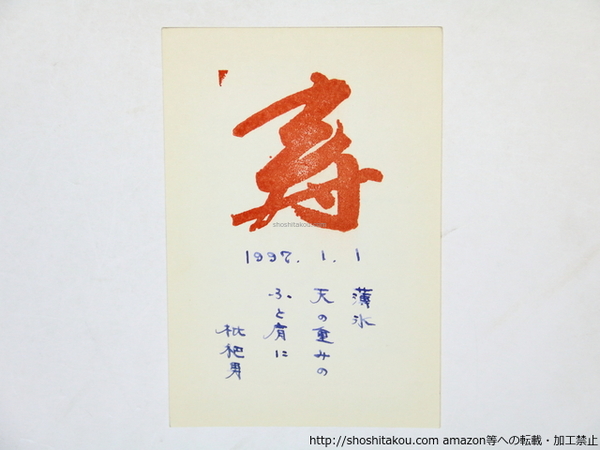 寿
shoshitakou.com
1997. 1. 1
薄氷
天の重みの
ふと肩に
枇杷男
http://shoshitakou.com amazon等への転載・加工禁止